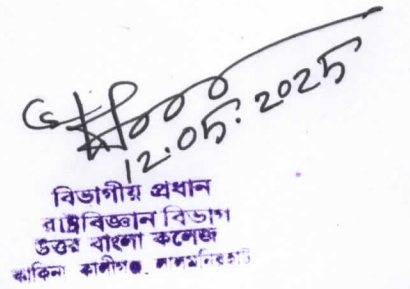 12.05.2025
বিভাগীয় প্রধান
রাষ্ট্রবিজ্ঞান বিভাগ
উত্তর বাংলা কলেজ
কাকিনা কালীগঞ্জ, লালমনিরহাট